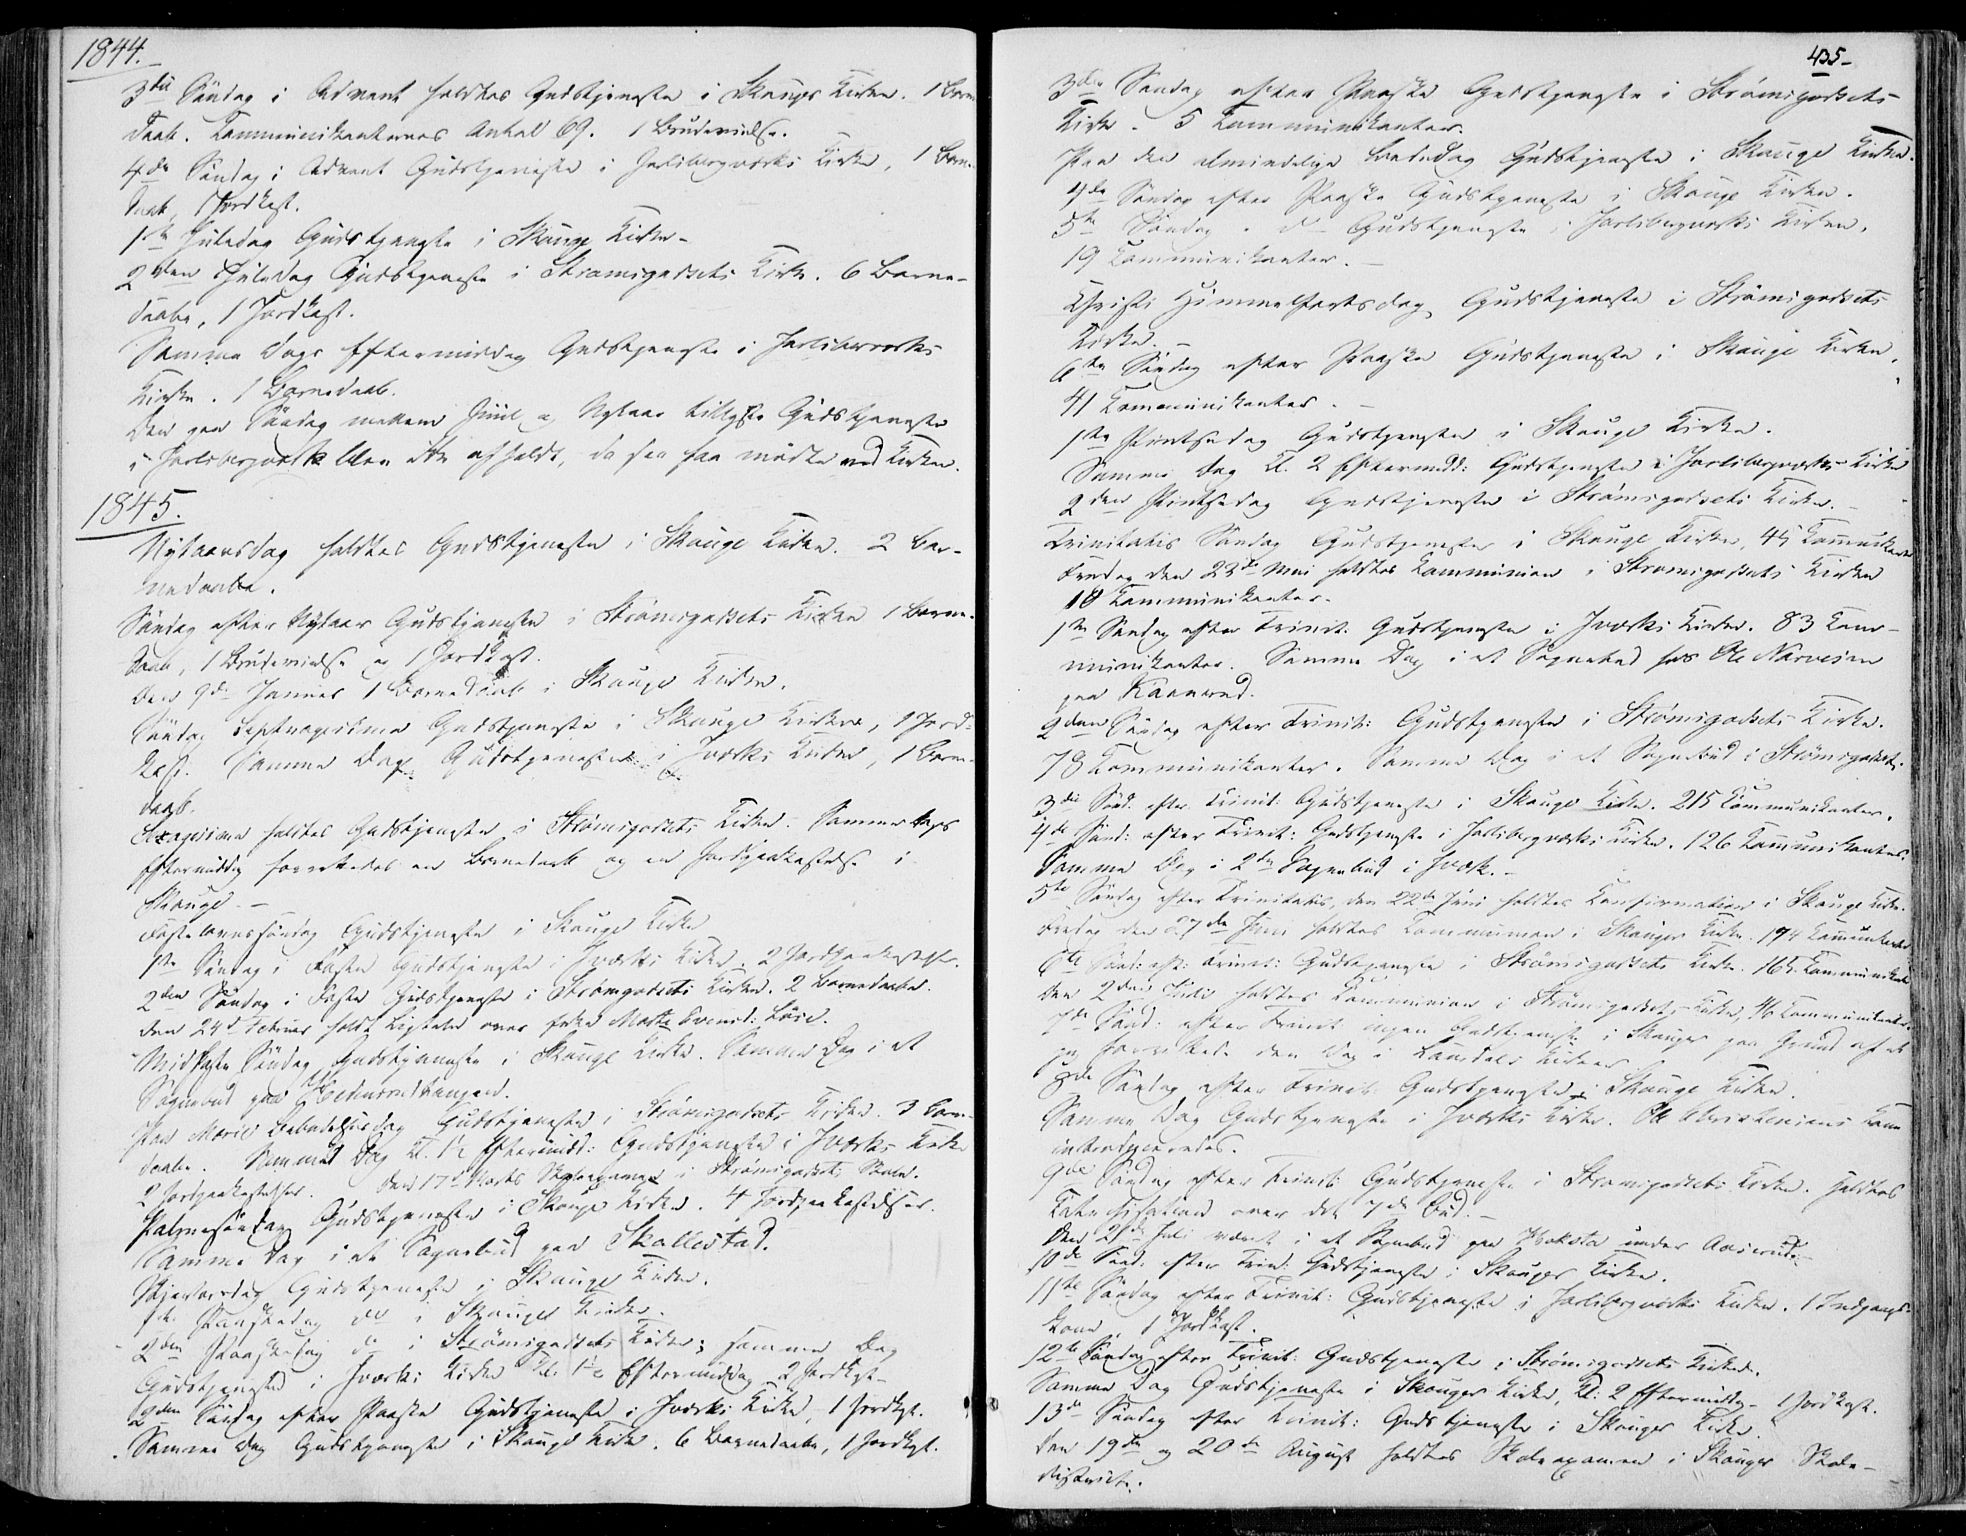 1844.
3die Søndag i Advent holdtes Gudstjeneste i Skouger Kirke. 1 Barne
daab. Communikanternes Antal 69. 1 Brudevielse.
4de Søndag i Advent Gudstjeneste i Jarlsbergværks Kirke, 1 Barne
daab, 1 Jordkast.
1ste Juledag Gudstjeneste i Skouge Kirke
2den Juledag Gudstjeneste i Strømsgodsets Kirke. 6 Barne-
daabe, 1 Jordkast.
Samme Dags Eftermiddag Gudstjeneste i Jarlsbergværks
Kirke. 1 Barnedaab.
Den paa Søndag mellem Juul og Nytaar tillyste Gudstjeneste
i Jarlsbergværk blev ikke afholdt, da faa mødte ved Kirken.
1845.
Nytaarsdag holdtes Gudstjeneste i Skouge Kirke. 2 Bar-
nedaabe.
Søndag efter Nytaar Gudstjeneste i Strømsgodsets Kirke 1 Barne-
daab, 1 Brudevielse og 1 Jordkast.
Den 9de Januar 1 Barnedaab i Skouge Kirke.
Søndag Septuagesima Gudstjeneste i Skouge Kirke, 1 Jord-
kast. Samme Dag Gudstjeneste i Jværks Kirke, 1 Barne-
daab.
Sexagesima holdtes Gudstjeneste i Strømsgodsets Kirke. Samme Dags
Eftermiddag forrettedes en Barnedaab og en Jordpaakastelse i
Skouge.
Fastelavnssøndag Gudstjeneste i Skouge Kirke
1ste Søndag i Faste Gudstjeneste i Jværks Kirke. 2 Jordpaakastelser.
2den Søndag i Faste Gudstjeneste i Strømsgodsets Kirke. 2 Barnedaabe.
Den 24de Februar holdt Ligtale over
Midfaste Søndag Gudstjeneste i Skouge Kirke. Samme Dag i et
Sognebud paa
Paa Mariæ Bebudelsesdag Gudstjeneste i Strømsgodsets Kirke. 3 Barne-
daabe. Samme Dag Kl. 1½ Eftermidd: Gudstjeneste i Jværks Kirke
2 Jordpaakastelser. Den 17de Marts Skoleexamen i Strømsgodsets Skole.
Palmesøndag Gudstjeneste i Skouge Kirke. 4 Jordpaakastelser.
Samme Dag i et Sognebud paa Skallestad.
Skjertorsdag Gudstjeneste i Skouge Kirke.
1ste Paaskedag do i Skouger Kirke.
2den Paaskedag do i Strømsgodsets Kirke; samme Dag
Gudstjeneste i Jværks Kirke Kl. 1½ Eftermiddag 2 Jordkast
2den Søndag efter Paaske Gudstjeneste i Jværks Kirke, 1 Jordkast.
Samme Dag Gudstjeneste i Skouge Kirke. 6 Barnedaabe, 1 Jordkast.
435
3die Søndag efter Paaske Gudstjeneste i Strømsgodsets
Kirke. 5 Communikanter.
Paa den almindelige Bededag Gudstjeneste i Skouge Kirke.
4de Søndag efter Paaske Gudstjeneste i Skouge Kirke.
5te Søndag do Gudstjeneste i Jarlsbergværks Kirke,
19 Communikanter.
Christi Himmelfartsdag Gudstjeneste i Strømsgodsets
Kirke.
6te Søndag efter Paaske Gudstjeneste i Skouge Kirke,
41 Communikanter.
1ste Pintsedag Gudstjeneste i Skouge Kirke.
Samme Dag Kl. 2 Eftermidd: Gudstjeneste i Jarlsbergværks Kirke
2den Pintsedag Gudstjeneste i Strømsgodsets Kirke.
Trinitatis Søndag Gudstjeneste i Skouge Kirke, 45 Communikanter
Fredag den 23de Mai holdtes Communion i Strømsgodsets Kirke
18 Communikanter.
1ste Søndag efter Trinit: Gudstjeneste i Jværks Kirke. 83 Com-
munikanter. Samme Dag i et Sognebud hos Ole Narvesen
paa Kaarrud.
2den Søndag efter Trinit: Gudstjeneste i Strømsgodsets Kirke.
78 Communikanter. Samme Dag i et Sognebud i Strømsgodset.
3die Sønd. efter Trinit: Gudstjeneste i Skouge Kirke. 215 Communikanter.
4de Sønd: efter Trinit: Gudstjeneste i Jarlsbergværks Kirke. 126 Communikanter.
Samme Dag i 2de Sognebud i Jværk.
5te Søndag efter Trinitatis, den 22de Juni holdtes Confirmation i Skouge Kirke.
Fredag den 27de Juni holdtes Communion i Skouger Kirke. 174 Communikanter
6te Sønd: eft: Trinit: Gudstjeneste i Strømsgodsets Kirke. 165 Communikanter
Den 2den Juli holdtes Communion i Strømsgodsets Kirke, 46 Communikanter.
7de Sønd: efter Trinit ingen Gudstjeneste i Skouger paa Grund af at
jeg forrettede den Dag i Kirke
8de Søndag efter Trinit Gudstjeneste i Skouge Kirke.
Samme Dag Gudstjeneste i Jværks Kirke. Ole Christensens Kone
introduceredes.
9de Søndag efter Trinit: Gudstjeneste i Strømsgodsets Kirke. Holdtes
Katechisation over det 7de Bud.
Den 21de Juli været i et Sognebud paa under Aaserud.
10de Sønd. efter Trin: Gudstjeneste i Skouger Kirke.
11te Søndag efter Trinit: Gudstjeneste i Jarlsbergværks Kirke. 1 Indgangs-
kone. 1 Jordkast.
12te Søndag efter Trinit: Gudstjeneste i Strømsgodsets Kirke.
Samme Dag Gudstjeneste i Skouger Kirke, Kl: 2 Eftermiddag. 1 Jordkast.
13de Søndag efter Trinit: Gudstjeneste i Skouger Kirke.
Den 19de og 20de August holdtes Skoleexamen i Skouger Skole-
district.